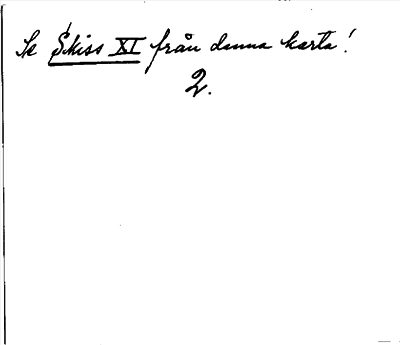 Se Skiss XI från denna karta!
2.